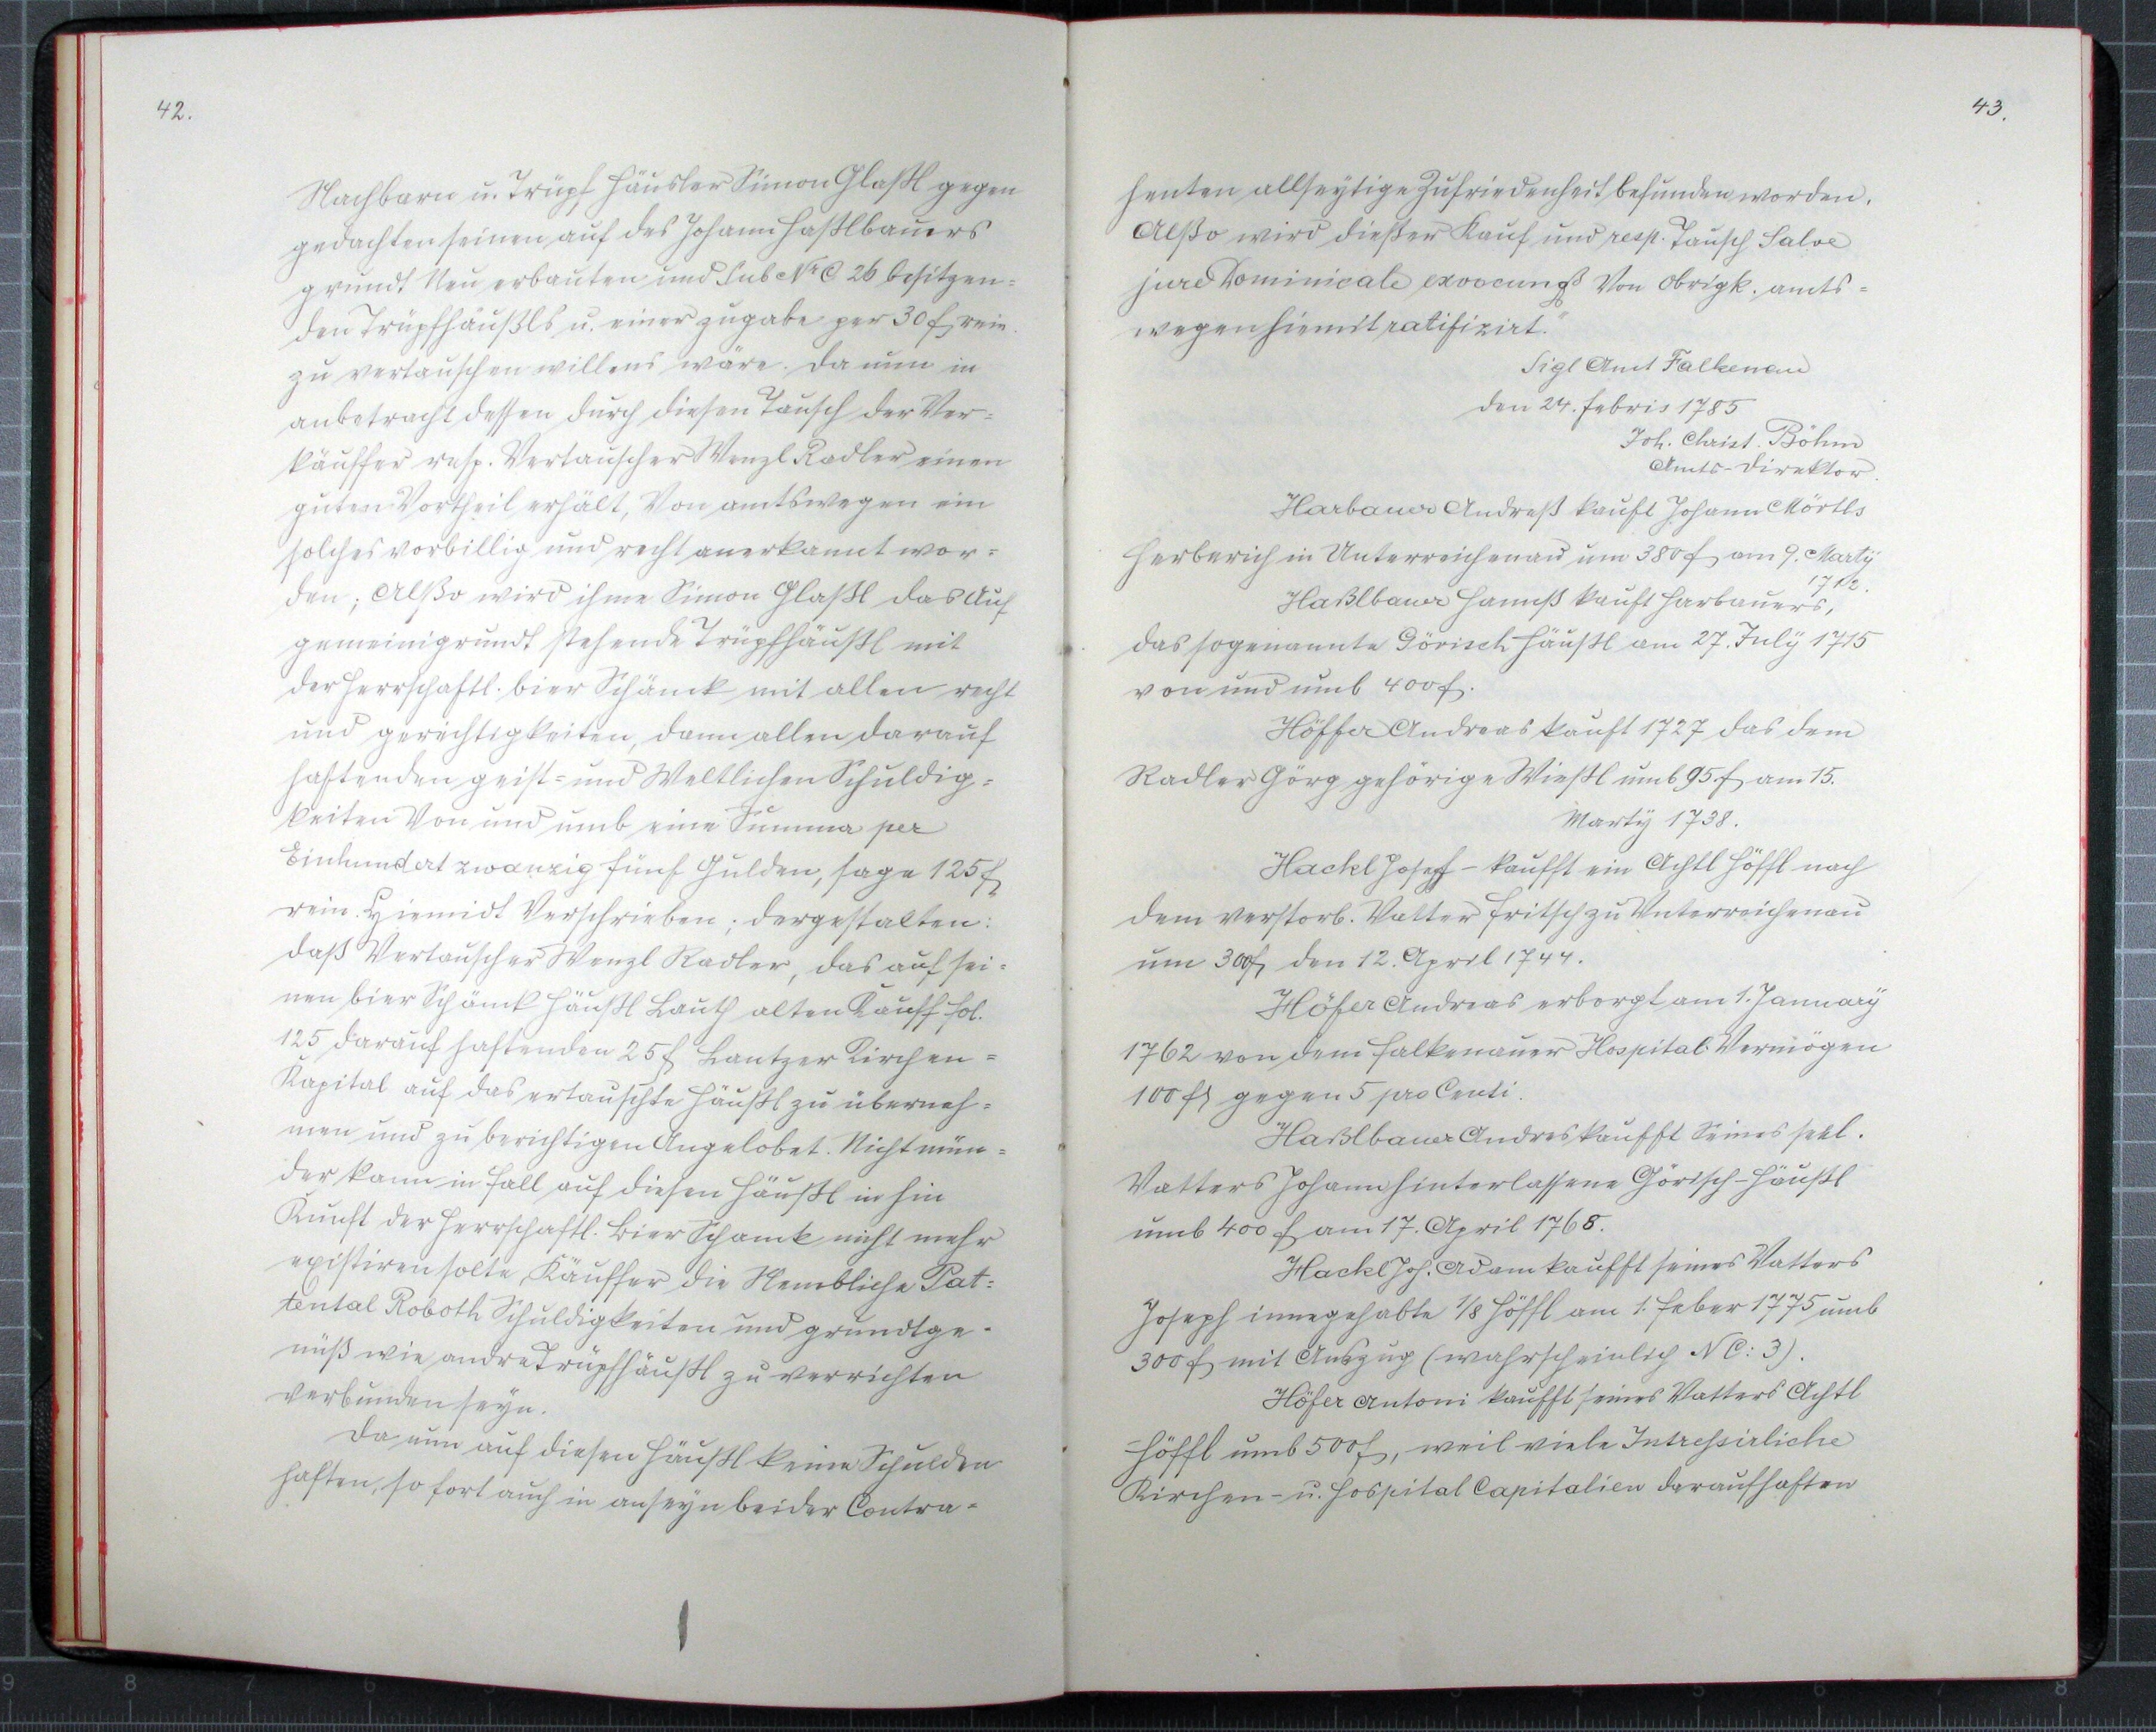 42.
Nachbarn u. Trüpf Häusler Simon Glaßl gegen
gedachten seinen auf des Johann Haßlbauers
grundt Neu erbauten und Sub Nr C 26 besitzen=
den Trüpfhäußls u. einer zugabe per 30 f rein.
zu vertauschen willens wäre. Da nun in
anbetracht dessen durch diesen Tausch der Ver=
käuffer resp. Vertauscher Wenzl Radler einen
guten Vortheil erhält, Von amtswegen ein
solches vorbillig und recht anerkannt wor=
den; Alßo wird ihme Simon Glaßl das Auf
gemeinigrundt stehende Trüpfhäußl mit
der Herrschaftl. bier Schänck mit allen recht
und gerechtigkeiten, dann allen darauf
haftenden geist= und Weltlichen Schuldig=
keiten Von und umb eine Summa per
Einhundert zwanzig fünf Gulden, sage 125 f
rein. Hiemidt Verschrieben; dergestalten:
daß Vertauscher Wenzl Radler, das auf sei=
nen bier Schänck Häußl Lauth alten Kauff fol.
125 darauf haftenden 25 f Lantzer Kirchen=
Kapital auf das ertauschte Häußl zu überneh=
men und zu berichtigen Angelobet. Nicht min=
der kann in fall auf diesen Häußl in hin
Kunft der Herrschaftl. Bier Schanck nicht mehr
existiren solte Käuffer die Nembliche Pat=
tental Roboth Schuldigkeiten und grundtge=
nuß wie andre Trüpfhäußl zu verrichten
verbunden seyn.
Da nun auf diesen Häußl keine Schulden
haften, so fort auch in anseyn beider Contra=
43.
henten allseytige Zufriedenheit befunden worden.
Alßo wird dießer Kauf und resp. Tausch Salve
jure Dominicale Von obrigk. amts=
wegen hiemit ratifizirt."
Sigl Amt Falkenau
den 24. febris 1785
Joh. Christ. Böhm
Amts-Direktor.
Harbauer Andreß kauft Johann Mörtls
Herberich in Unterreichenau um 380 f am 9. Marty
1712.
Haßlbauer Hannß kauft Harbauers,
das sogenannte Görisch Häußl am 27. July 1715
von und umb 400 f.
Höffer Andreas kauft 1727 das dem
Radler Görg gehörige Wießl umb 95 f am 15.
Marty 1738.
Hackl Josef – kaufft ein Achtl Höffl nach
dem verstorb. Vatter Fritsch zu Unterreichenau
um 300 f, den 12. April 1744.
Höfer Andreas erborgt am 1. January
1762 von dem Falkenauer Hospital Vermögen
100 f gegen 5 pro Centi.
Haßlbauer Andres kaufft Seines seel.
Vatters Johann hinterlassene Görisch-Häußl
umb 400 f am 17. April 1768.
Hackl Joh. Adam kaufft seines Vatters
Joseph innegehabte 1/8 Höffl am 1. feber 1775 umb
300 f mit Auszug (wahrscheinlich N C: 3).
Höfer Antoni kaufft seines Vatters Achtl
Höffl umb 500 f, weil viele Intressirliche
Kirchen- u. Hospital Capitalien darauf haften